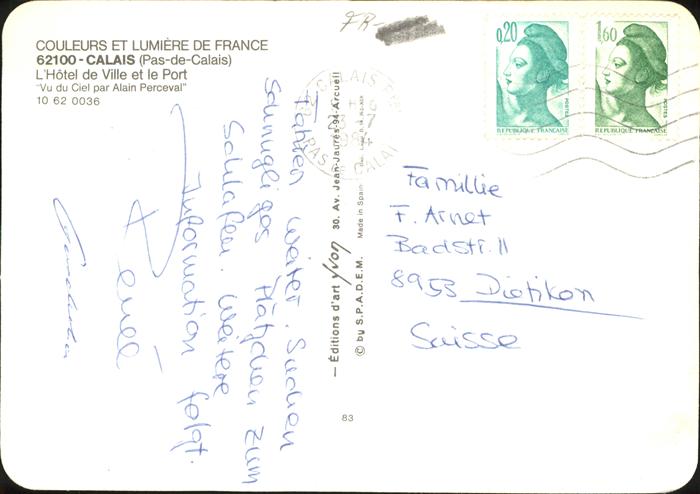 COULEURS ET LUMIÈRE DE FRANCE
62100 - CALAIS (Pas-de-Calais)
L'Hôtel de Ville et le Port
"Vu du Ciel par Alain Perceval"
10 62 0036
FR-
0,20
POSTES
REPUBLIQUE FRANÇAISE
1,60
POSTES
REPUBLIQUE FRANÇAISE
CALAIS
PAS DE CALAIS
Fahren weiter. Suchen
sonnigliges Plätzchen zum
Schlafen. Weitere
Information folgt.
René
— Éditions d'art yvon 30, Av. Jean-Jaurès-94-Arcueil
© by S.P.A.D.E.M. Made in Spain
83
Famillie
F. Arnet
Badstr. 11
8953 Dietikon
Suisse